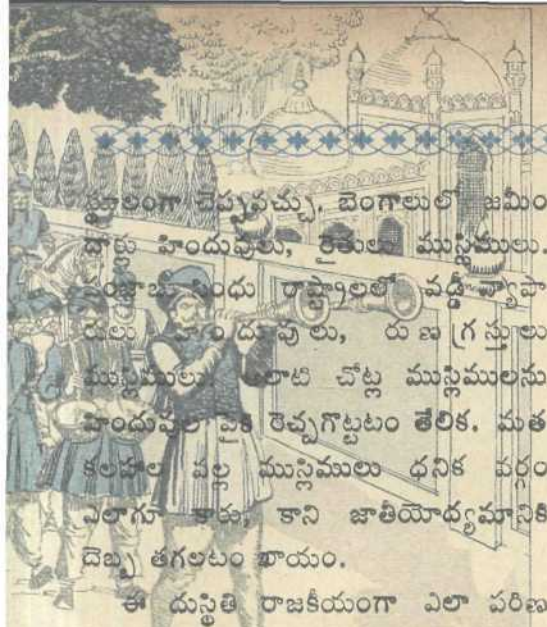 స్థూలంగా చెప్పవచ్చు, బెంగాలులో జమీం
దార్లు హిందువులు, రైతులు ముస్లిములు.
పంజాబు సింధు రాష్ట్రాలతో వడ్డీ వ్యాపా
రులు హిందువులు, రుణగ్రస్తులు
ముస్లిములు. ఇలాటి చోట్ల ముస్లిములను
హిందువుల పైకి రెచ్చగొట్టటం తేలిక. మత
కలహాల వల్ల ముస్లిములు ధనిక వర్గం
ఎలాగూ కారు, కాని జాతీయోద్యమానికి
దెబ్బ తగలటం ఖాయం.
ఈ దుస్థితి రాజకీయంగా ఎలా పరిణ